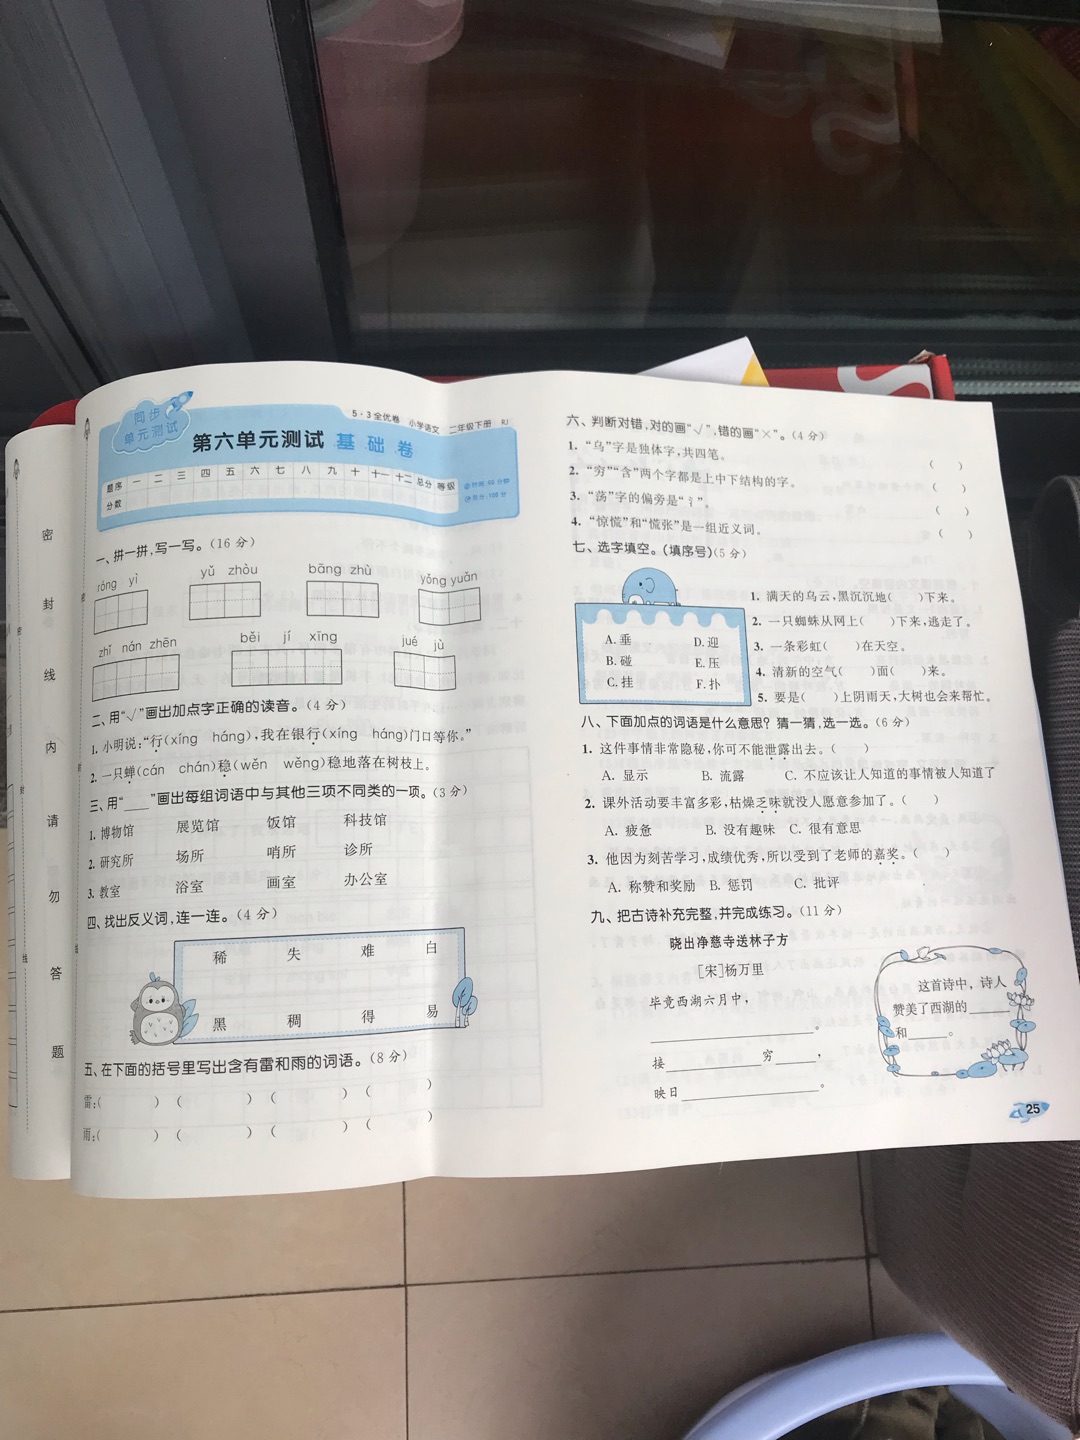 密
封
线
内
请
勿
答
题
同步
单元测试
5·3全优卷 小学语文 二年级下册 RJ
第六单元测试 基础卷
题序 一 二 三 四 五 六 七 八 九 十 十一 十二 总分 等级
分数
时间:60分钟
总分:100分
一、拼一拼,写一写。(16分)
róng yì yǔ zhòu bāng zhù yǒng yuǎn
zhǐ nán zhēn běi jí xīng jué jù
二、用“√”画出加点字正确的读音。(4分)
1. 小明说:“行(xíng háng),我在银行(xíng háng)门口等你。”
2. 一只蝉(cán chán)稳(wěn wěng)稳地落在树枝上。
三、用“____”画出每组词语中与其他三项不同类的一项。(3分)
1. 博物馆 展览馆 饭馆 科技馆
2. 研究所 场所 哨所 诊所
3. 教室 浴室 画室 办公室
四、找出反义词,连一连。(4分)
稀 失 难 白
黑 稠 得 易
五、在下面的括号里写出含有雷和雨的词语。(8分)
雷:( ) ( ) ( ) ( )
雨:( ) ( ) ( ) ( )
六、判断对错,对的画“√”,错的画“×”。(4分)
1. “乌”字是独体字,共四笔。 ( )
2. “穷”“含”两个字都是上中下结构的字。 ( )
3. “荡”字的偏旁是“氵”。 ( )
4. “惊慌”和“慌张”是一组近义词。 ( )
七、选字填空。(填序号)(5分)
A. 垂 D. 迎
B. 碰 E. 压
C. 挂 F. 扑
1. 满天的乌云,黑沉沉地( )下来。
2. 一只蜘蛛从网上( )下来,逃走了。
3. 一条彩虹( )在天空。
4. 清新的空气( )面( )来。
5. 要是( )上阴雨天,大树也会来帮忙。
八、下面加点的词语是什么意思?猜一猜,选一选。(6分)
1. 这件事情非常隐秘,你可不能泄露出去。( )
A. 显示 B. 流露 C. 不应该让人知道的事情被人知道了
2. 课外活动要丰富多彩,枯燥乏味就没人愿意参加了。( )
A. 疲惫 B. 没有趣味 C. 很有意思
3. 他因为刻苦学习,成绩优秀,所以受到了老师的嘉奖。( )
A. 称赞和奖励 B. 惩罚 C. 批评
九、把古诗补充完整,并完成练习。(11分)
晓出净慈寺送林子方
[宋]杨万里
毕竟西湖六月中,
____________________。
接____________穷______,
映日__________________。
这首诗中，诗人
赞美了西湖的______
和______。
25